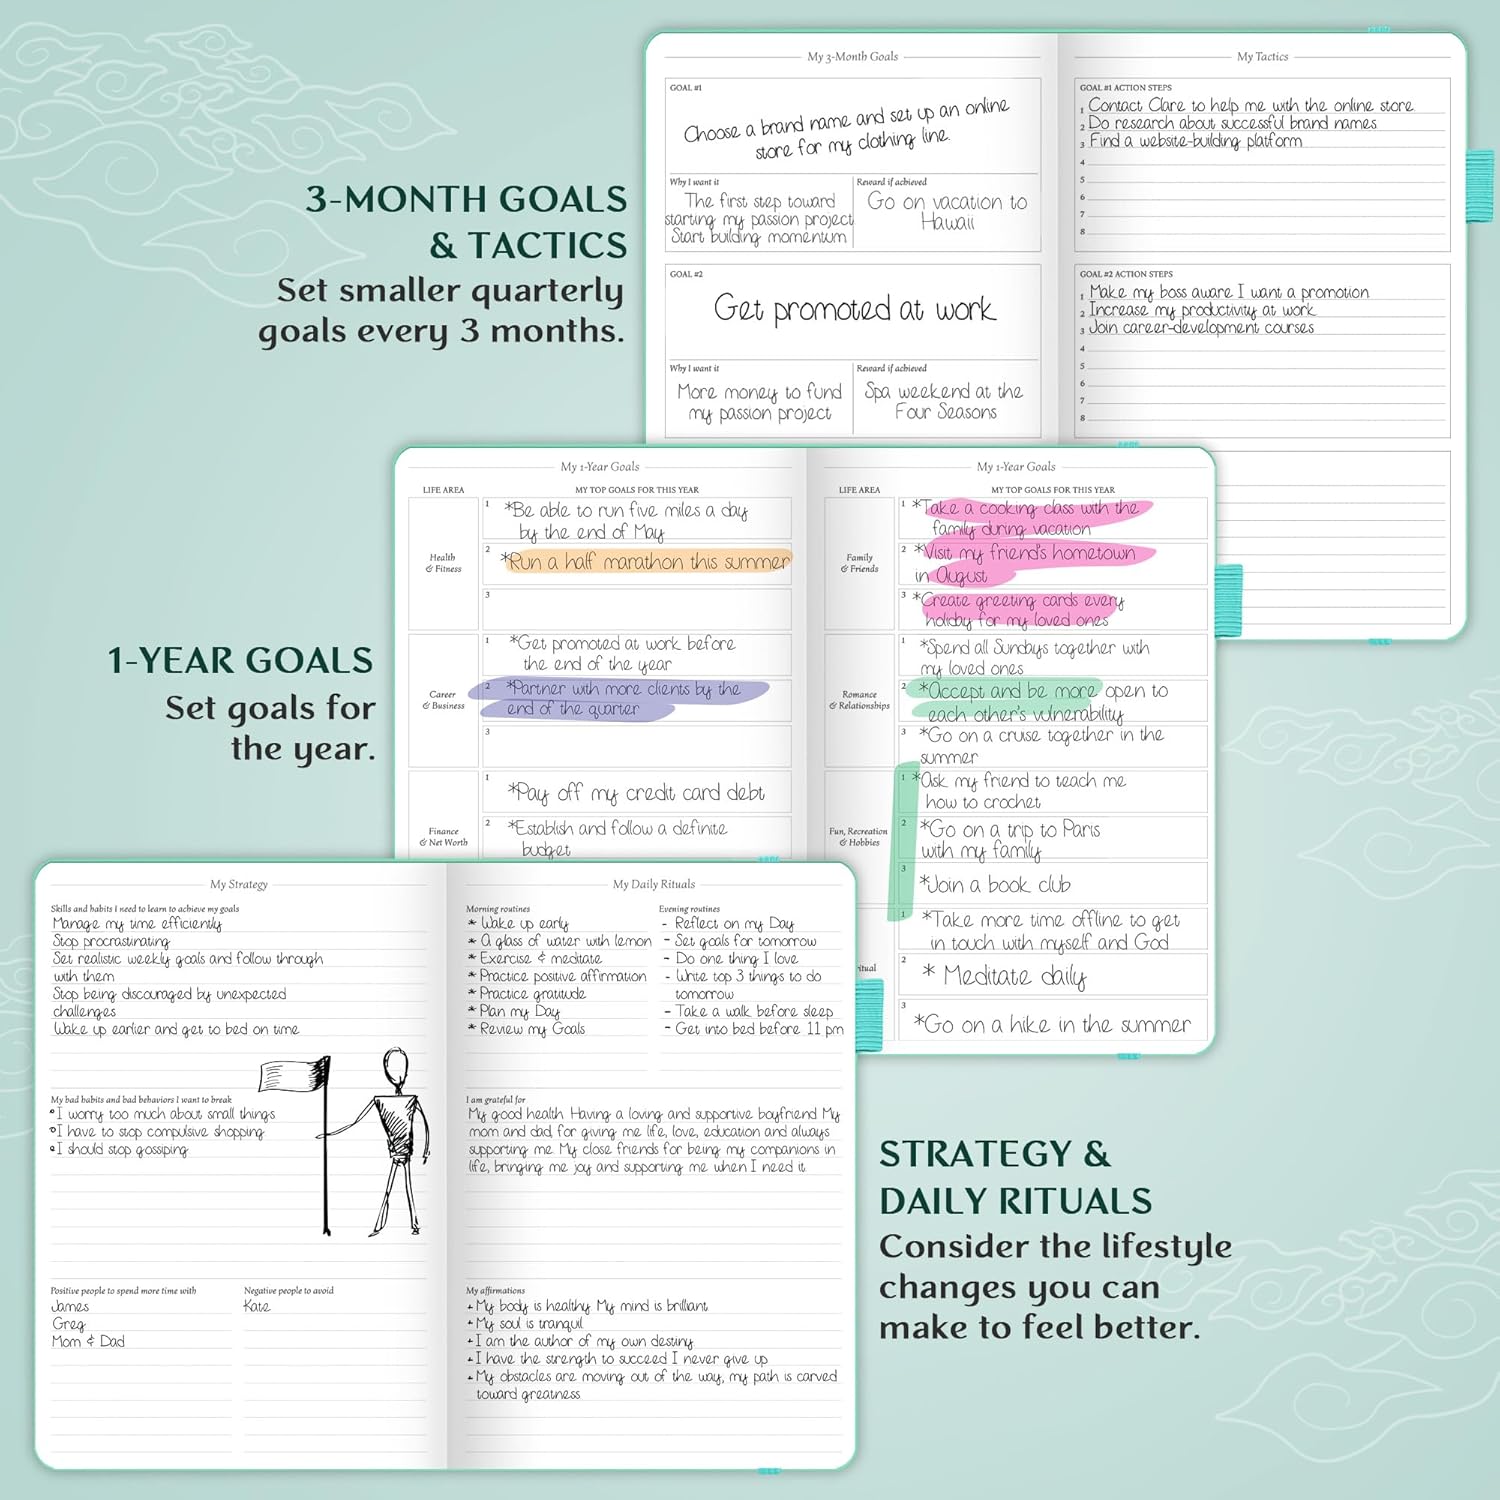 3-MONTH GOALS
& TACTICS
Set smaller quarterly
goals every 3 months.
My 3-Month Goals
GOAL #1
Choose a brand name and set up an online
store for my clothing line.
Why I want it
The first step toward
starting my passion project
Start building momentum
Reward if achieved
Go on vacation to
Hawaii
GOAL #2
Get promoted at work
Why I want it
More money to fund
my passion project
Reward if achieved
Spa weekend at the
Four Seasons
My Tactics
GOAL #1 ACTION STEPS
1 Contact Clare to help me with the online store
2 Do research about successful brand names
3 Find a website-building platform
4
5
6
7
8
GOAL #2 ACTION STEPS
1 Make my boss aware I want a promotion
2 Increase my productivity at work
3 Join career-development courses
4
5
6
7
8
1-YEAR GOALS
Set goals for
the year.
My 1-Year Goals
LIFE AREA
MY TOP GOALS FOR THIS YEAR
Health
& Fitness
1 *Be able to run five miles a day
by the end of May
2 *Run a half marathon this summer
3
Career
& Business
1 *Get promoted at work before
the end of the year
2 *Partner with more clients by the
end of the quarter
3
Finance
& Net Worth
1 *Pay off my credit card debt
2 *Establish and follow a definite
budget
My 1-Year Goals
LIFE AREA
MY TOP GOALS FOR THIS YEAR
Family
& Friends
1 *Take a cooking class with the
family during vacation
2 *Visit my friend's hometown
in August
3 *Create greeting cards every
holiday for my loved ones
Romance
& Relationships
1 *Spend all Sundays together with
my loved ones
2 *Accept and be more open to
each other's vulnerability
3 *Go on a cruise together in the
summer
Fun, Recreation
& Hobbies
1 *Ask my friend to teach me
how to crochet
2 *Go on a trip to Paris
with my family
3 *Join a book club
itual
1 *Take more time offline to get
in touch with myself and God
2 * Meditate daily
3 *Go on a hike in the summer
My Strategy
Skills and habits I need to learn to achieve my goals
Manage my time efficiently
Stop procrastinating
Set realistic weekly goals and follow through
with them
Stop being discouraged by unexpected
challenges
Wake up earlier and get to bed on time
My bad habits and bad behaviors I want to break
I worry too much about small things
I have to stop compulsive shopping
I should stop gossiping
Positive people to spend more time with
James
Greg
Mom & Dad
Negative people to avoid
Kate
My Daily Rituals
Morning routines
* Wake up early
* A glass of water with lemon
* Exercise & meditate
* Practice positive affirmation
* Practice gratitude
* Plan my Day
* Review my Goals
Evening routines
- Reflect on my Day
- Set goals for tomorrow
- Do one thing I love
- Write top 3 things to do
tomorrow
- Take a walk before sleep
- Get into bed before 11 pm
I am grateful for
My good health Having a loving and supportive boyfriend My
mom and dad, for giving me life, love, education and always
supporting me. My close friends for being my companions in
life, bringing me joy and supporting me when I need it
My affirmations
+ My body is healthy My mind is brilliant
+ My soul is tranquil
+ I am the author of my own destiny
+ I have the strength to succeed I never give up
+ My obstacles are moving out of the way, my path is carved
toward greatness
STRATEGY &
DAILY RITUALS
Consider the lifestyle
changes you can
make to feel better.